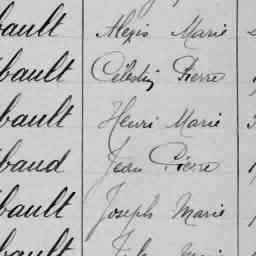 bault Alexis Marie
bault Célestin Pierre
bault Henri Marie
baud Jean Pierre
bault Joseph Marie
bault